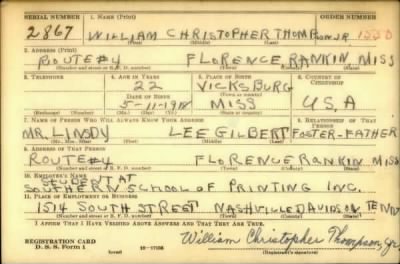 SERIAL NUMBER 1. NAME (Print) ORDER NUMBER
2867 WILLIAM CHRISTOPHER THOMPSON JR.
(First) (Middle) (Last)
2. ADDRESS (Print)
ROUTE #4 FLORENCE RANKIN MISS
(Number and street or R. F. D. number) (Town) (County) (State)
3. TELEPHONE 4. AGE IN YEARS 5. PLACE OF BIRTH 6. COUNTRY OF CITIZENSHIP
22 VICKSBURG
DATE OF BIRTH (Town or county)
5-11-1918 MISS U.S.A
(Exchange) (Number) (Mo.) (Day) (Yr.) (State or country)
7. NAME OF PERSON WHO WILL ALWAYS KNOW YOUR ADDRESS 8. RELATIONSHIP OF THAT PERSON
MR. LINSDY LEE GILBERT FOSTER-FATHER
(Mr., Mrs., Miss) (First) (Middle) (Last)
9. ADDRESS OF THAT PERSON
ROUTE #4 FLORENCE RANKIN MISS
(Number and street or R. F. D. number) (Town) (County) (State)
10. EMPLOYER'S NAME
STUDENT AT
SOUTHERN SCHOOL OF PRINTING INC.
11. PLACE OF EMPLOYMENT OR BUSINESS
1514 SOUTH STREET NASHVILLE DAVIDSON TENN
(Number and street or R. F. D. number) (Town) (County) (State)
I AFFIRM THAT I HAVE VERIFIED ABOVE ANSWERS AND THAT THEY ARE TRUE.
REGISTRATION CARD
D. S. S. Form 1 (over) 16-17105 William Christopher Thompson, Jr.
(Registrant's signature)